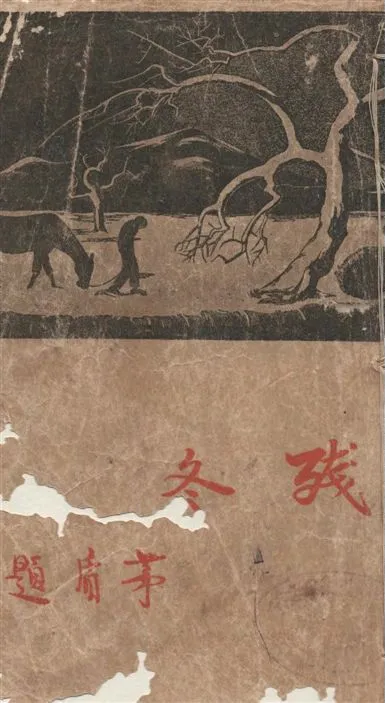 残冬
茅盾題